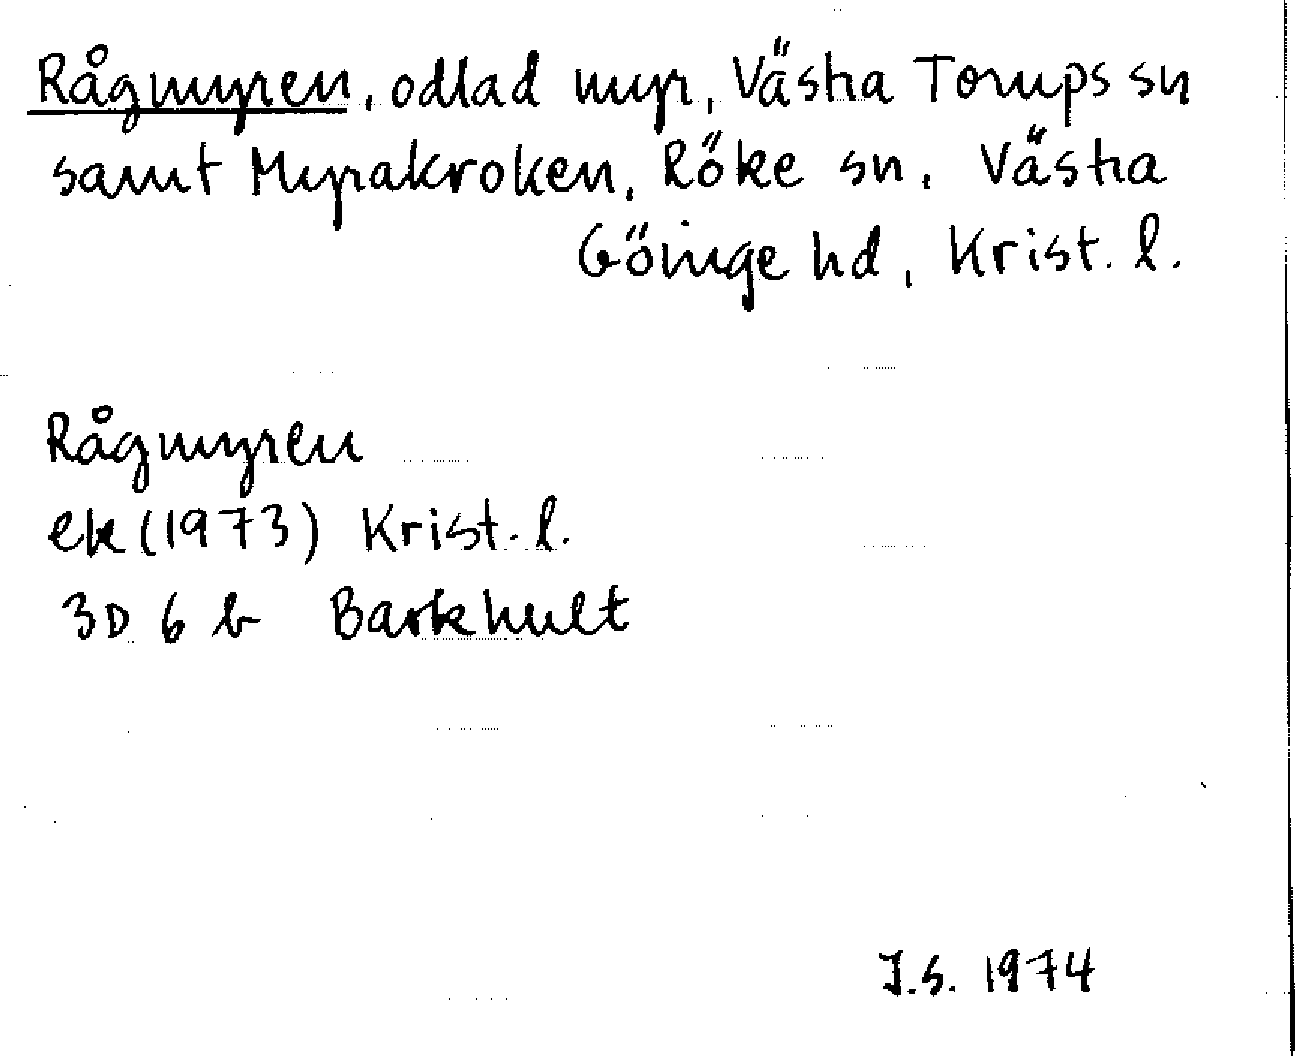 Rågmyren, odlad myr, Västra Torups sn
samt Myrakroken, Röke sn, Västra
Göinge hd, Krist. l.
Rågmyren
ek (1973) Krist. l.
3D 6 b Barkhult
J.S. 1974